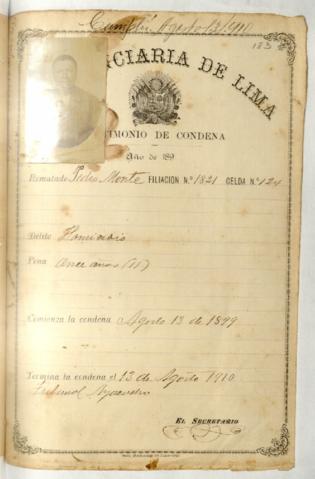 Cumplió Agosto 13/1910
183
NCIARIA DE LIMA
TIMONIO DE CONDENA
Año de 189
Rematado Pedro Monte FILIACION N.º 1821 CELDA N.º 124
Delito Homicidio
Pena Once años (11)
Comienza la condena Agosto 13 de 1899
Termina la condena el 13 de Agosto 1910
Tribunal Ayacucho
EL SECRETARIO